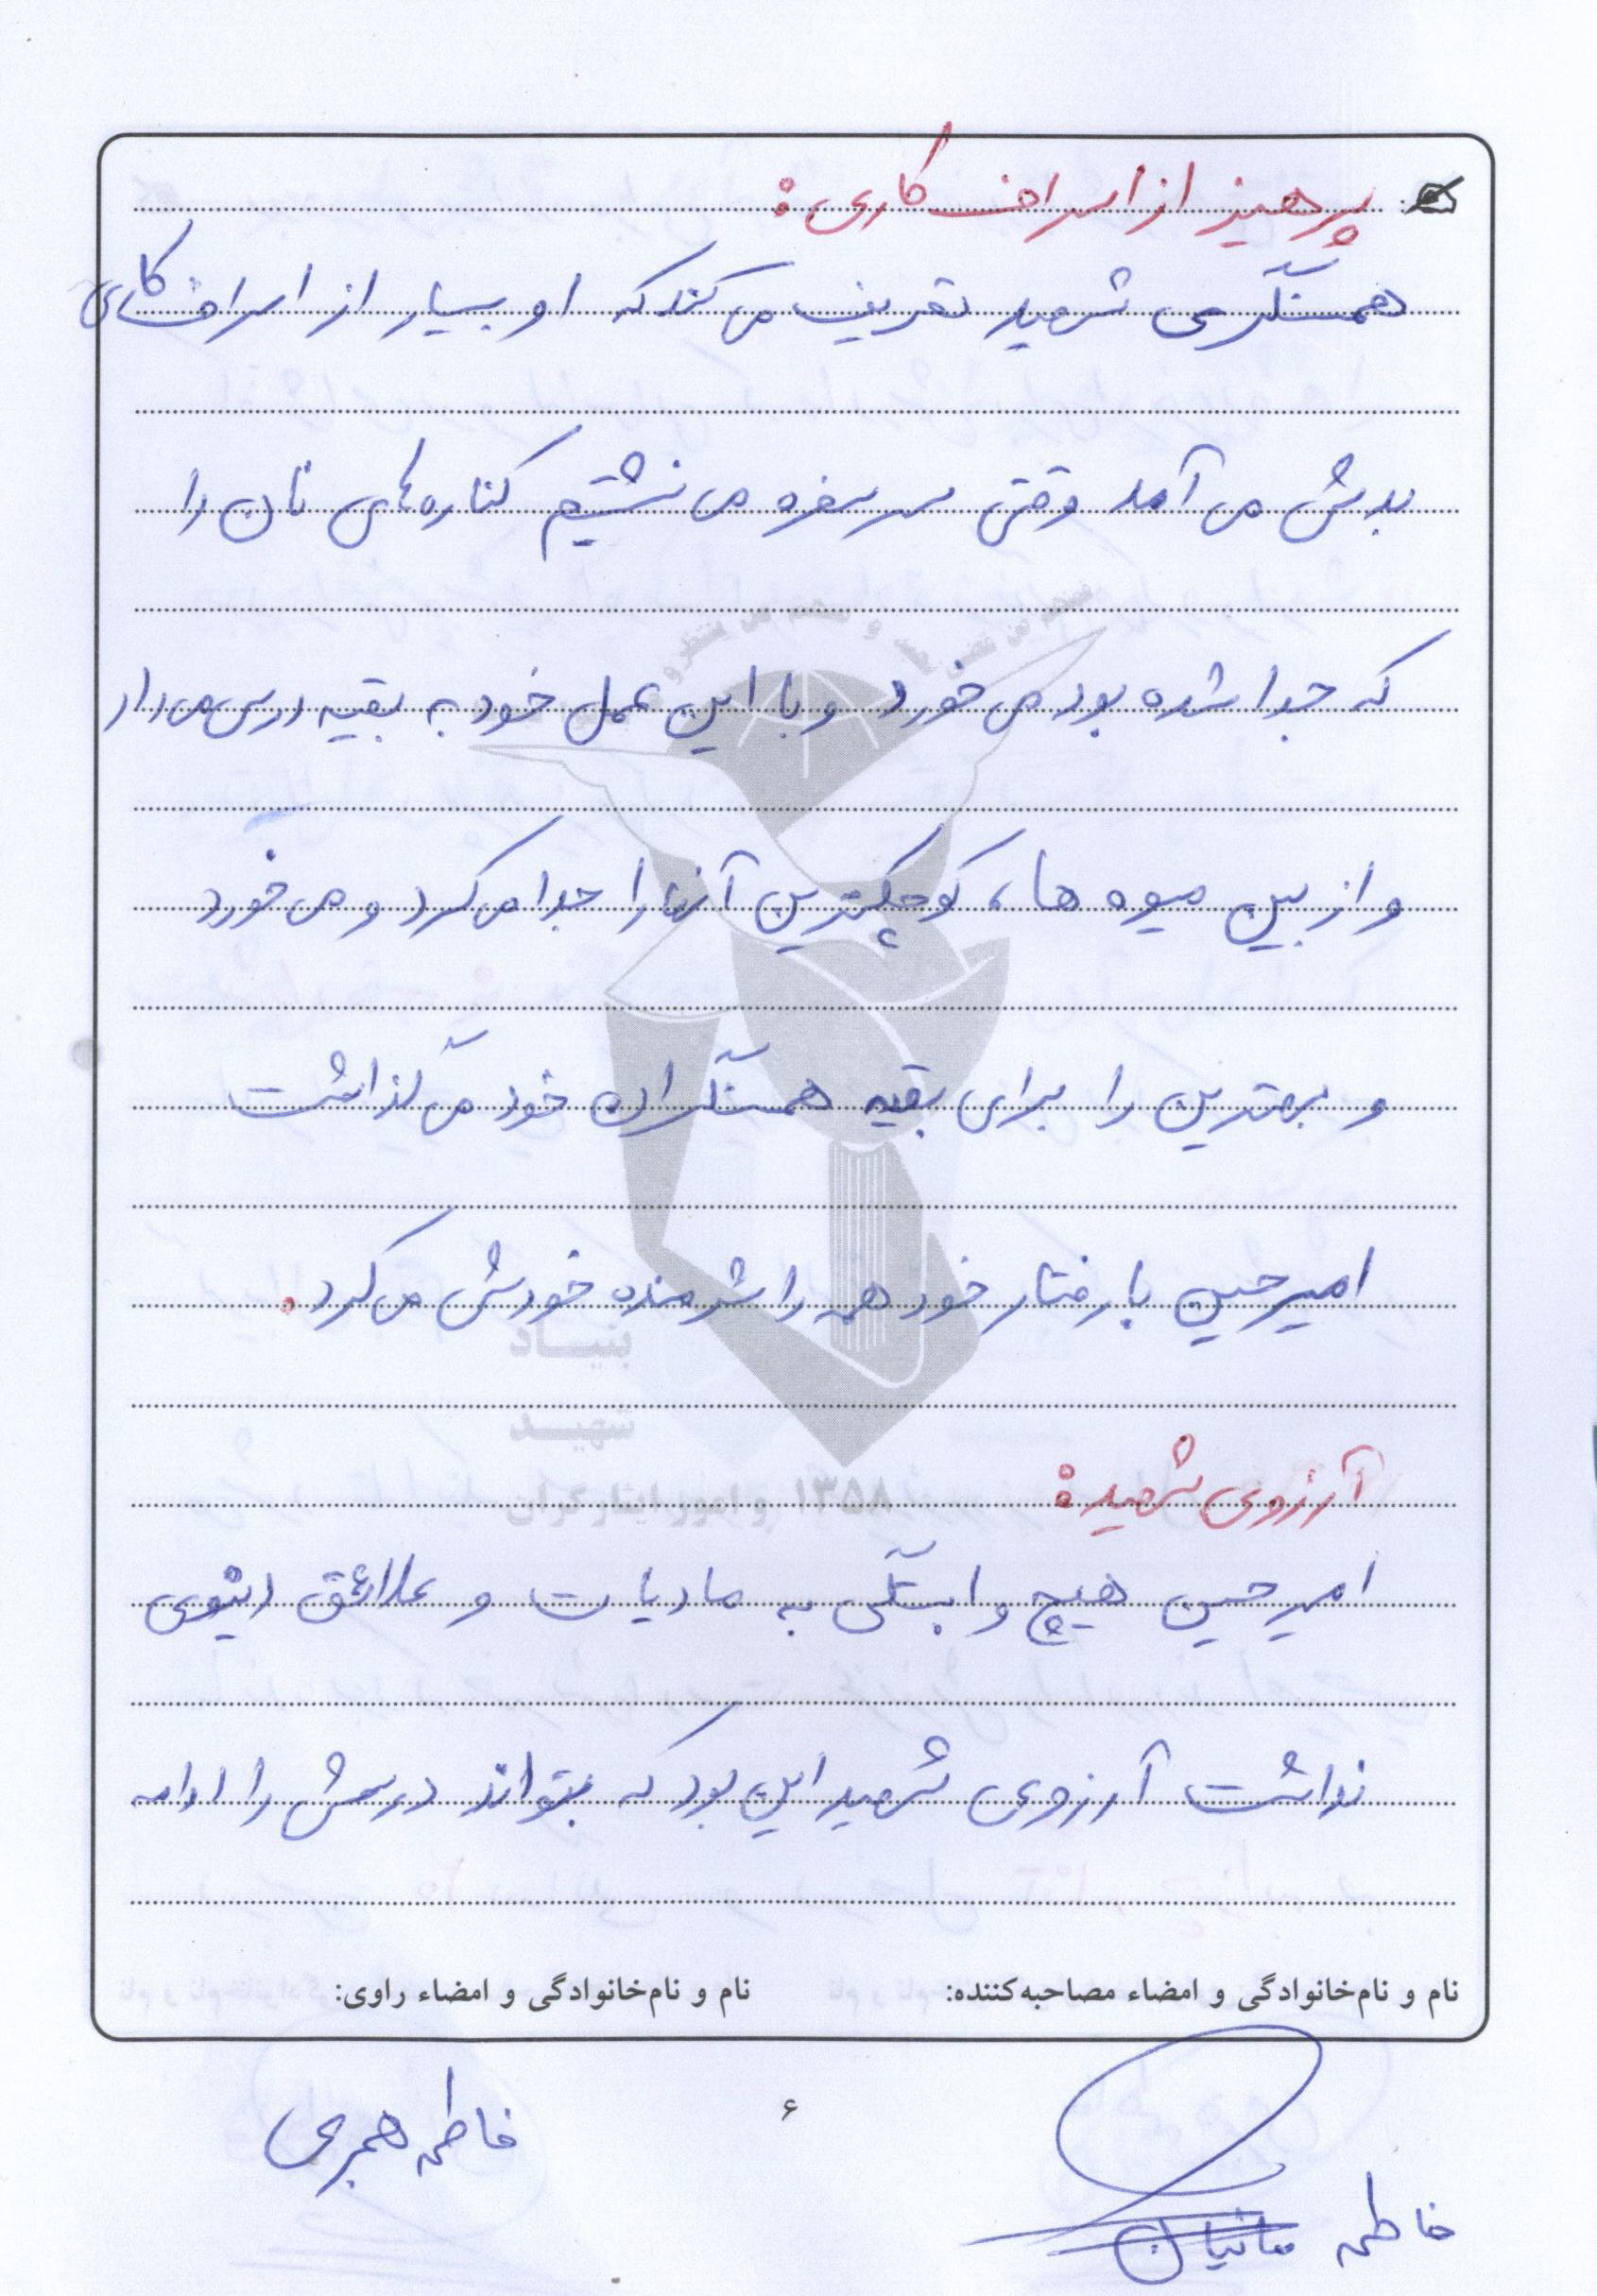 پرهیز از اسراف کاری:
همسنگری شهید تعریف می کند که او بسیار از اسراف کاری
بدش می آمد وقتی سر سفره می نشستیم کناره های نان را
که جدا شده بود می خورد و با این عمل خود به بقیه درس می داد
و از بین میوه ها، کوچکترین آنها را جدا می کرد و می خورد
و بهترین را برای بقیه همسنگران خود می گذاشت
امیرحسین با رفتار خود همه را شرمنده خودش می کرد.
بنیاد
شهید
و امور ایثارگران ۱۳۵۸
آرزوی شهید:
امیرحسین هیچ وابستگی به مادیات و علائق دنیوی
نداشت آرزوی شهید این بود که بتواند درسش را ادامه
نام و نام‌خانوادگی و امضاء مصاحبه‌کننده: نام و نام‌خانوادگی و امضاء راوی:
فاطمه همبری
۶
فاطمه